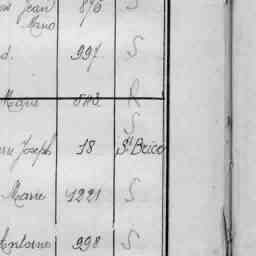 Jean 876 S
d. 997 S
Marie R
S
Joseph 18 St Brice
Marie 1221 S
Antoine 998 S